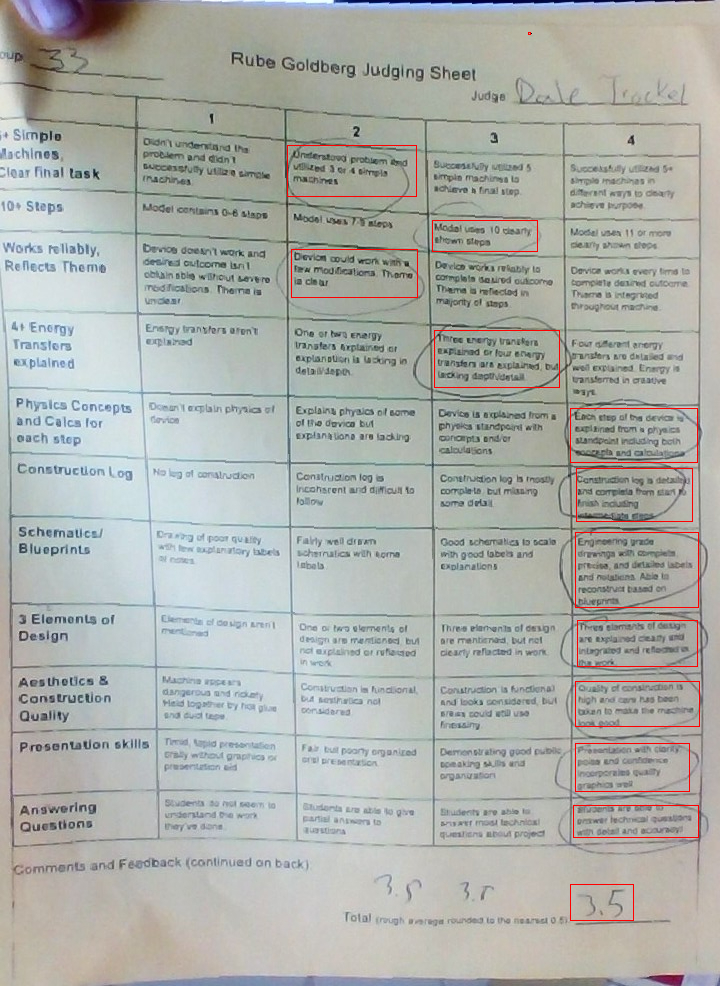 33
Rube Goldberg Judging Sheet
Judge Dale
1 2 3 4
Simple Machines, Clear final task
Didn't understand the problem and didn't successfully utilize simple machines.
Understood problem and utilized 3 or 4 simple machines
Successfully utilized 5 simple machines to achieve a final step.
Successfully utilized 5+ simple machines in different ways to clearly achieve purpose.
10+ Steps
Model contains 0-6 steps
Model uses 7-9 steps
Model uses 10 clearly shown steps
Model uses 11 or more clearly shown steps.
Works reliably, Reflects Theme
Device doesn't work and desired outcome isn't obtainable without severe modifications. Theme is unclear
Device could work with a few modifications. Theme is clear
Device works reliably to complete desired outcome. Theme is reflected in majority of steps.
Device works every time to complete desired outcome. Theme is integrated throughout machine.
4+ Energy Transfers explained
Energy transfers aren't explained
One or two energy transfers explained or explanation is lacking in detail/depth.
Three energy transfers explained or four energy transfers are explained, but lacking depth/detail.
Four different energy transfers are detailed and well explained. Energy is transferred in creative ways.
Physics Concepts and Calcs for each step
Doesn't explain physics of device
Explains physics of some of the device but explanations are lacking
Device is explained from a physics standpoint with concepts and/or calculations
Each step of the device is explained from a physics standpoint including both concepts and calculations
Construction Log
No log of construction
Construction log is incoherent and difficult to follow
Construction log is mostly complete, but missing some detail.
Construction log is detailed and complete from start to finish including intermediate steps
Schematics/ Blueprints
Drawing of poor quality with few explanatory labels or notes.
Fairly well drawn schematics with some labels
Good schematics to scale with good labels and explanations
Engineering grade drawings with complete, precise, and detailed labels and notations. Able to reconstruct based on blueprints.
3 Elements of Design
Elements of design aren't mentioned
One or two elements of design are mentioned, but not explained or reflected in work.
Three elements of design are mentioned, but not clearly reflected in work.
Three elements of design are explained clearly and integrated and reflected in the work.
Aesthetics & Construction Quality
Machine appears dangerous and rickety. Held together by hot glue and duct tape.
Construction is functional, but aesthetics not considered.
Construction is functional and looks considered, but areas could still use finessing.
Quality of construction is high and care has been taken to make the machine look good.
Presentation skills
Timid, tepid presentation orally without graphics or presentation aid
Fair but poorly organized oral presentation.
Demonstrating good public speaking skills and organization
Presentation with clarity, poise and confidence incorporates quality graphics well
Answering Questions
Students do not seem to understand the work they've done.
Students are able to give partial answers to questions
Students are able to answer most technical questions about project
Students are able to answer technical questions with detail and accuracy!
Comments and Feedback (continued on back)
Total (rough average rounded to the nearest 0.5) 3.5